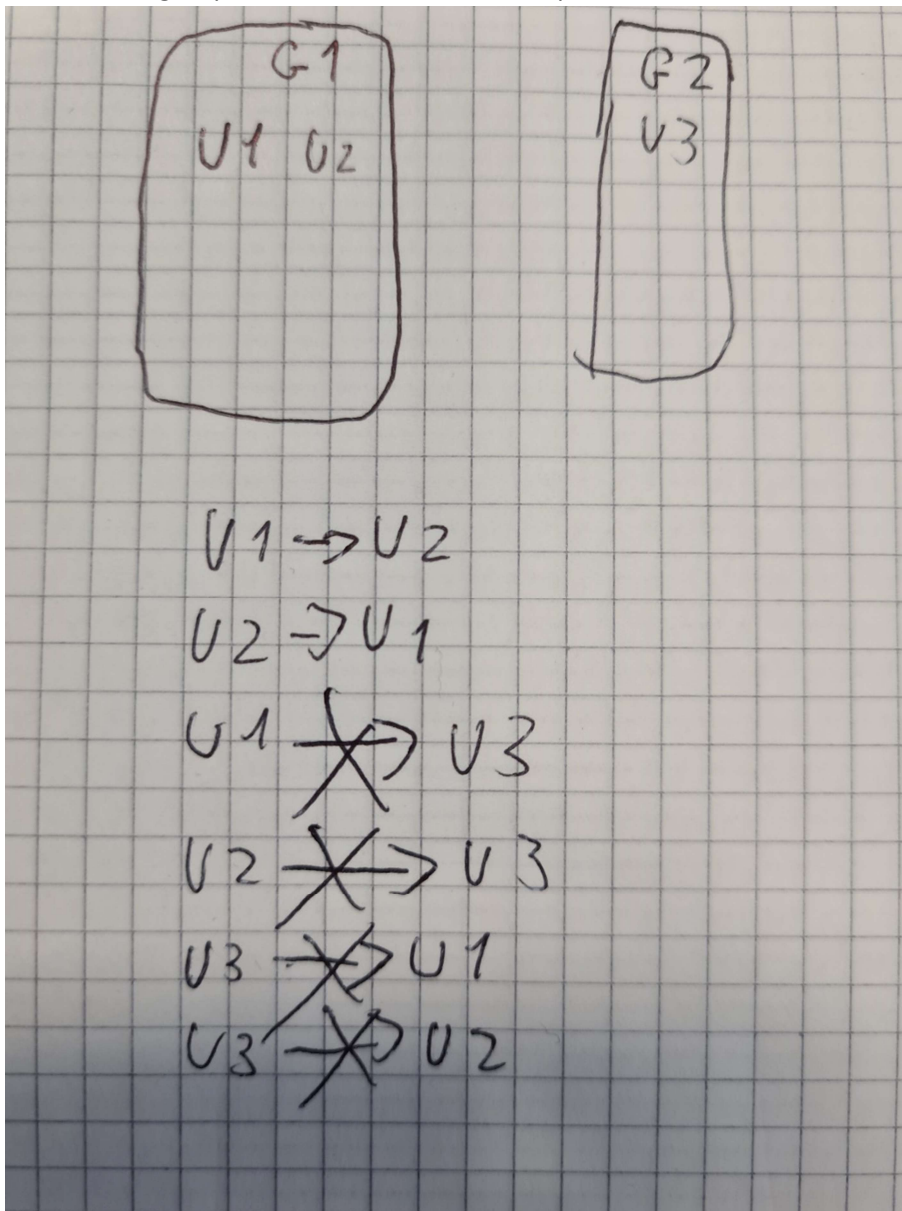 G1
U1 U2
G2
U3
U1 → U2
U2 → U1
U1 → U3
U2 → U3
U3 → U1
U3 → U2